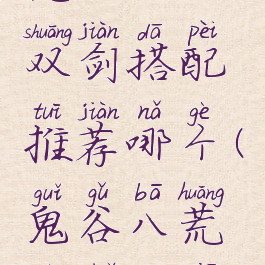 shuāng jiàn dā pèi
双剑搭配
tuī jiàn nǎ gè
推荐哪个(
guǐ gǔ bā huāng
鬼谷八荒